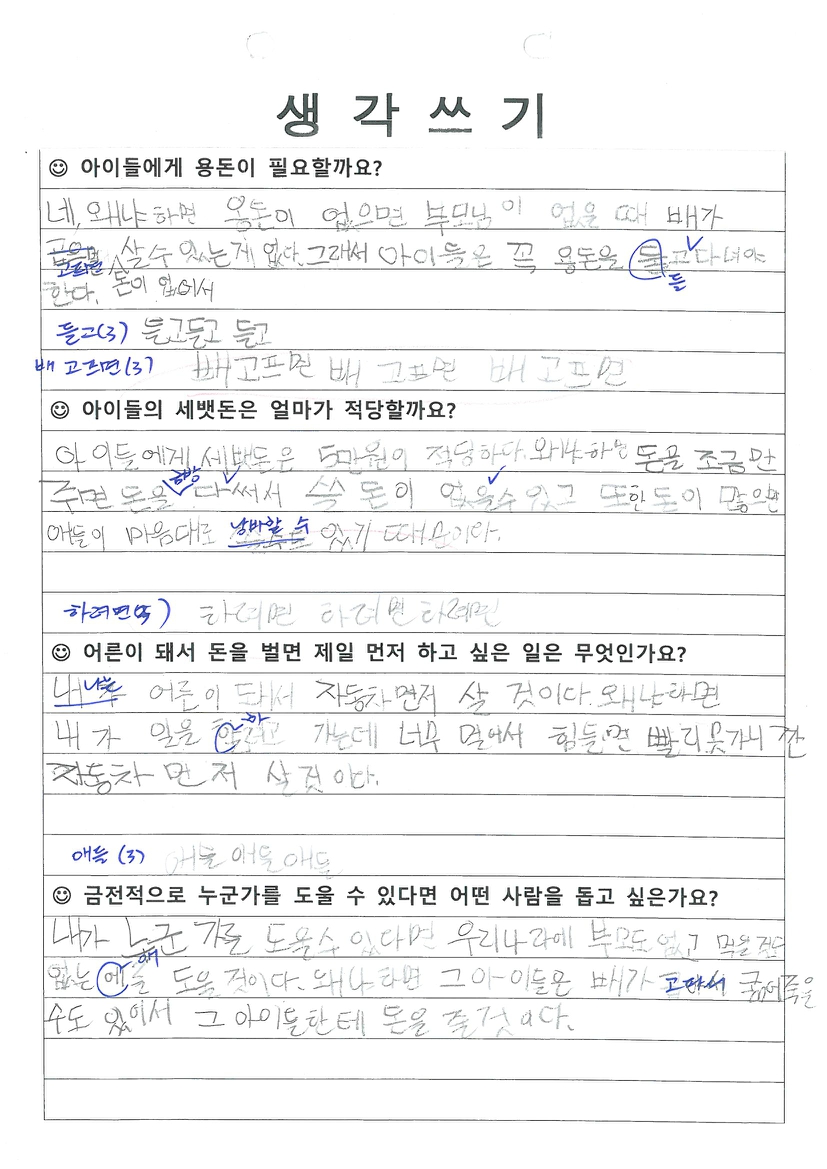 생각쓰기
아이들에게 용돈이 필요할까요?
네, 왜냐하면 용돈이 없으면 부모님이 없을 때 배가
고프면 살수 있는게 없다. 그래서 아이들은 꼭 용돈을 들고다녀야
한다. 돈이 없어서
들고(3) 들고들고 들고
배 고프면(3) 배고프면 배 고프면 배 고프면
아이들의 세뱃돈은 얼마가 적당할까요?
아이들에게 세뱃돈은 5만원이 적당하다. 왜냐하면 돈을 조금만
주면 돈을 금방 다써서 쓸 돈이 없을수 있고 또한 돈이 많으면
애들이 마음대로 낭비할 수 있기 때문이다.
하려면(3) 하려면 하려면 하려면
어른이 돼서 돈을 벌면 제일 먼저 하고 싶은 일은 무엇인가요?
나는 어른이 돼서 자동차먼저 살 것이다. 왜냐하면
내가 일을 하러 가는데 너무 멀어서 힘들면 빨리못가니깐
자동차 먼저 살것이다.
애들 (3) 애들 애들 애들
금전적으로 누군가를 도울 수 있다면 어떤 사람을 돕고 싶은가요?
내가 누군가를 도울수 있다면 우리나라에 부모도 없고 먹을것도
없는 애들 도울 것이다. 왜냐하면 그아이들은 배가 고파서 굶어죽을
수도 있어서 그 아이들한테 돈을 줄것이다.